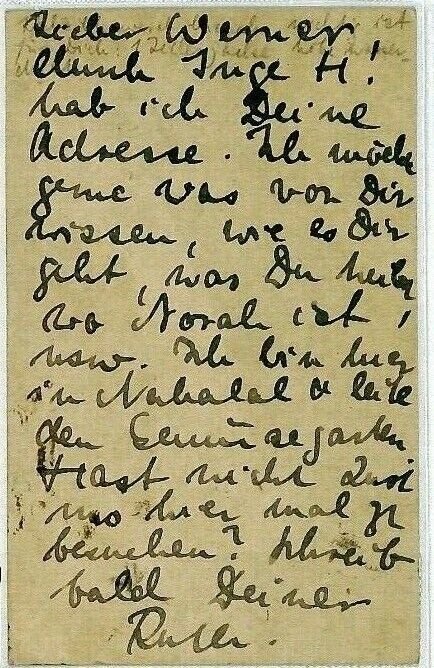 Lieber Werner
durch Inge H!
hab ich Deine
Adresse. Ich möchte
gerne was von Dir
wissen, wie es Dir
geht, was Du
wo Norah ist,
usw. Ich bin hier
in Nahalal & leite
den Gemüsegarten
Hast nicht Lust
hier mal z
besuchen? Schreib
bald Deiner
Ruth.